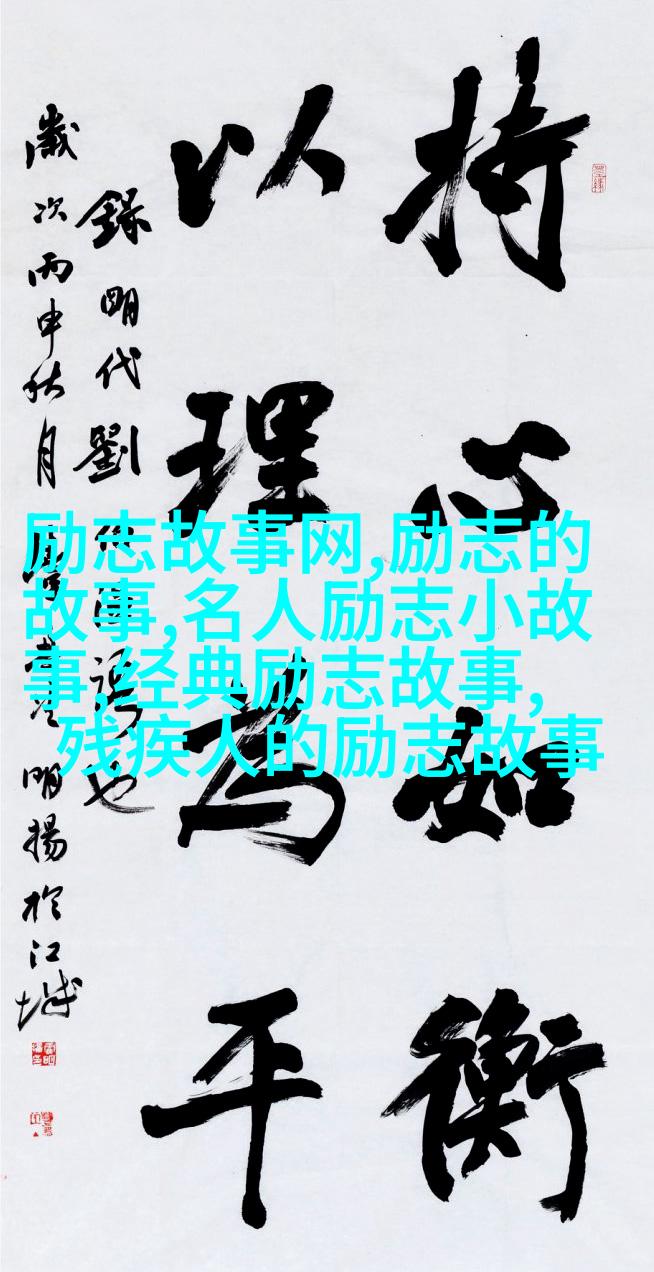 持心如衡
以理为平
録明代劉伯温語也
歲次丙申秋月
明揚於江城
励志故事网,励志的
故事,名人励志小故
事,经典励志故事,
残疾人的励志故事